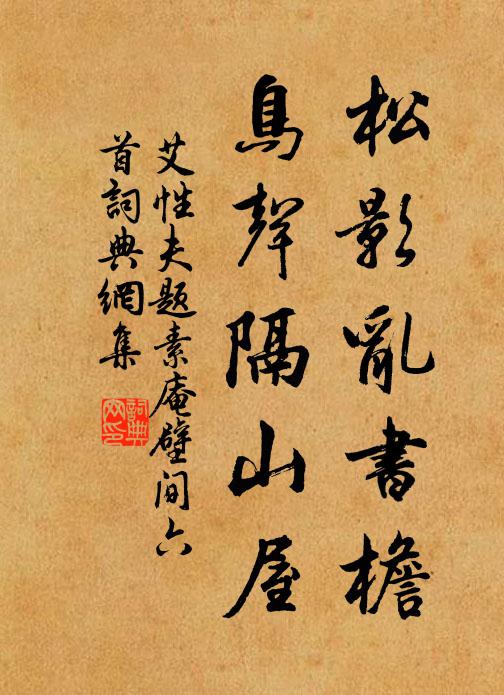 松影亂書檐
鳥聲隔山屋
艾性夫題素庵壁间六
首詞典網集
詞典
网印